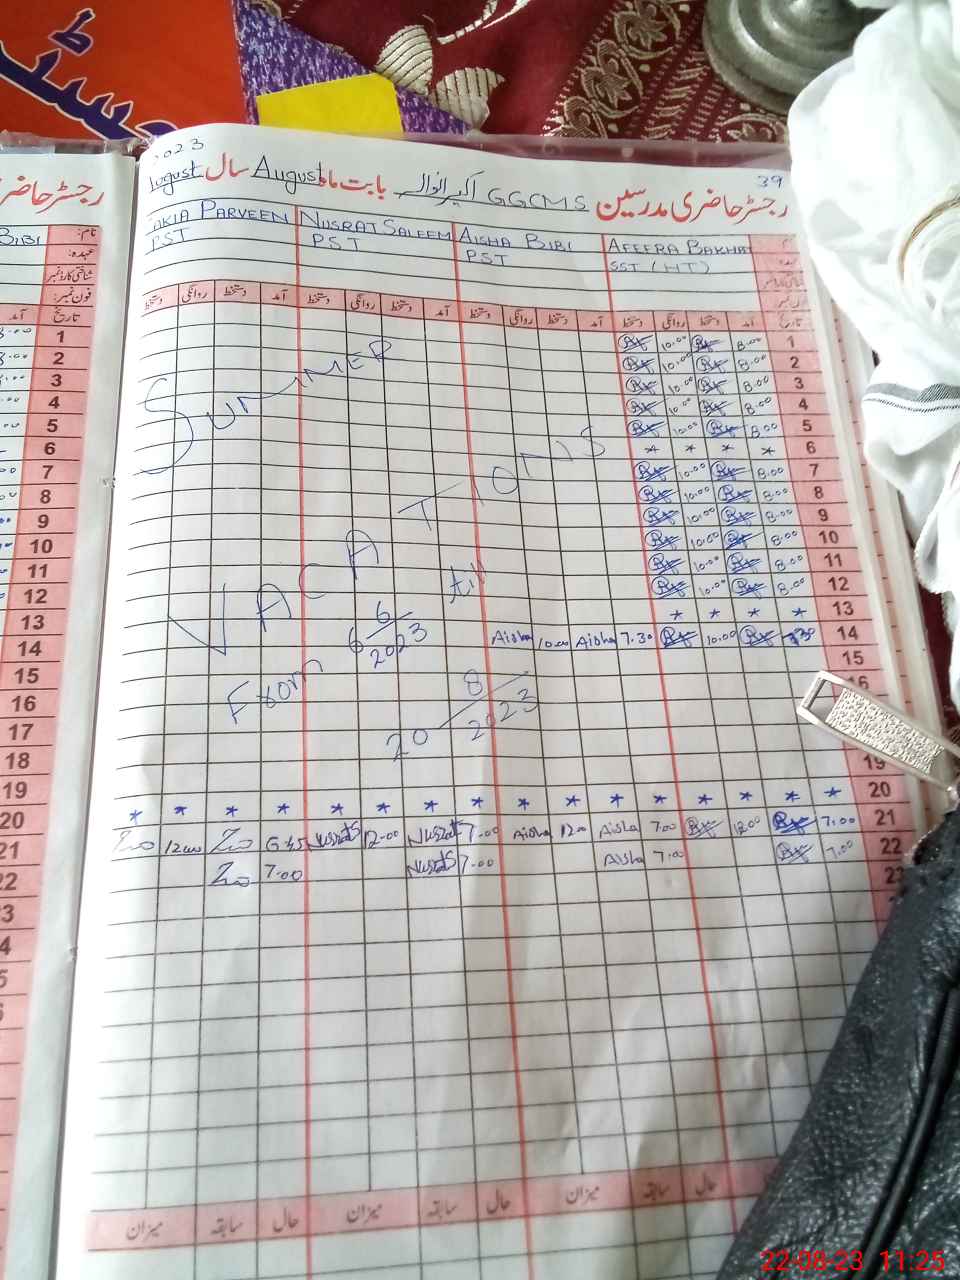 2023
39
رجسٹر حاضری مدرسین GGCMS اکبر انوالہ بابت ماہ August سال August
رجسٹر حاضری
نام: AFEERA BAKHAT AISHA BIBI NUSRAT SALEEM PARVEEN
BIBI نام:
SST (HT) PST PST PST
عہدہ:
شناختی کارڈ نمبر
فون نمبر:
تاریخ آمد دستخط روانگی دستخط آمد دستخط روانگی دستخط آمد دستخط روانگی دستخط آمد دستخط روانگی دستخط
تاریخ آمد
1 8.00 10.00
2 8.00 10.00
3 8.00 10.00
4 8.00 10.00
5 8.00 10.00
6 * * * *
7 8.00 10.00
8 8.00 10.00
9 8.00 10.00
10 8.00 10.00
11 8.00 10.00
12 8.00 10.00
13 * * * *
14 7.30 10.00 7.30 Aisha 10.00 Aisha
15
16
SUMMER
VACATIONS
From 6/6/2023 till
20/8/2023
19
20 * * * * * * * * * * * * * * * *
21 7.00 12.00 7.00 Aisha 12.00 Aisha 7.00 Nusrat 12.00 Nusrat 6.45 12.00
22 7.00 7.00 Aisha 7.00 Nusrat 7.00
23
1
2
3
4
5
6
7
8
9
10
11
12
13
14
15
16
17
18
19
20
21
22
حال سابقہ میزان حال سابقہ میزان حال سابقہ میزان
22-08-23 11:25